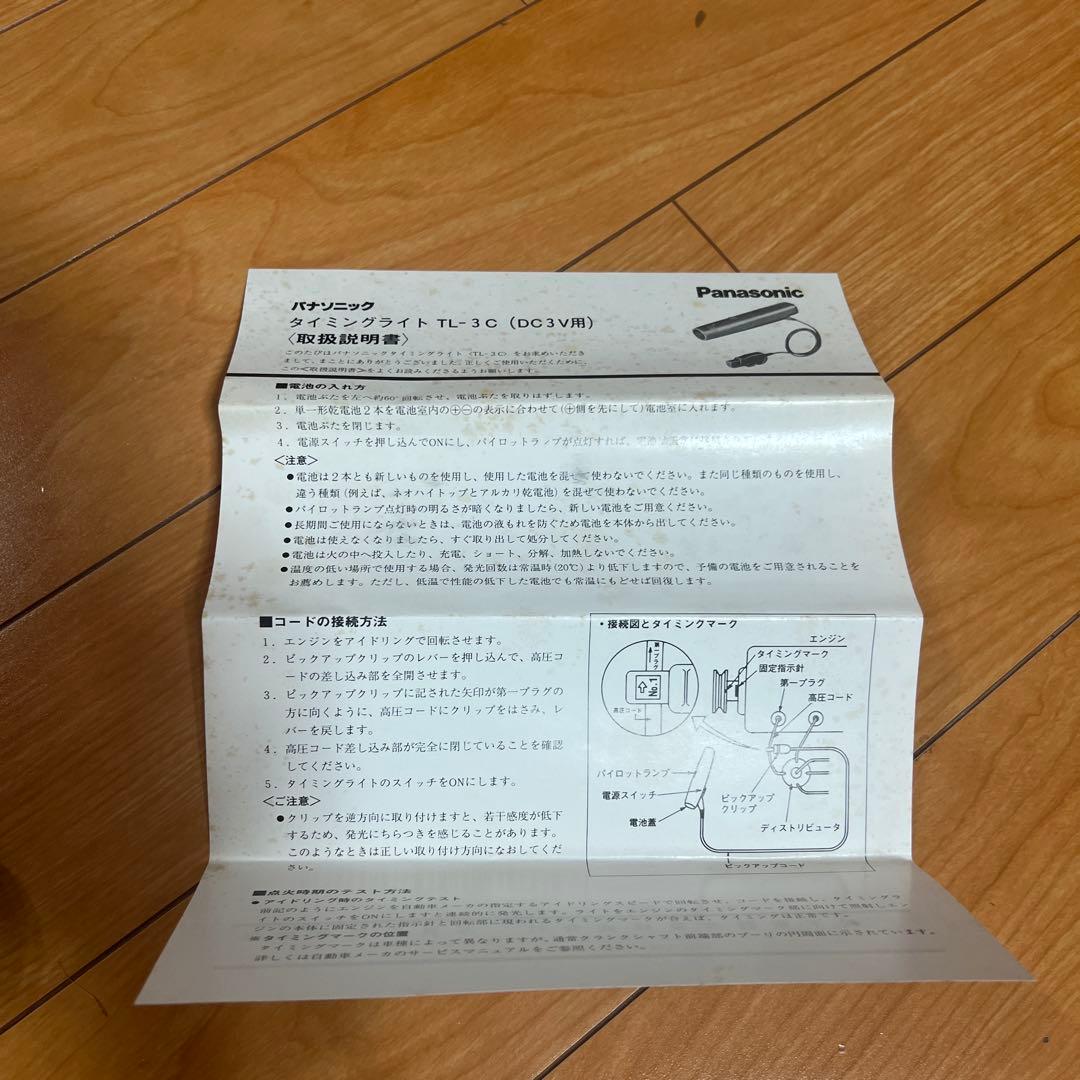 パナソニック
Panasonic
タイミングライト TL-3C (DC3V用)
〈取扱説明書〉
このたびはパナソニックタイミングライト〈TL-3C〉をお求めいただき
まして、まことにありがとうございました。正しくご使用いただくために、
この≪取扱説明書≫をよくお読みくださるようお願いします。
■電池の入れ方
1. 電池ぶたを左へ約60°回転させ、電池ぶたを取りはずします。
2. 単一形乾電池2本を電池室内の⊕⊖の表示に合わせて(⊕側を先にして)電池室に入れます。
3. 電池ぶたを閉じます。
4. 電源スイッチを押し込んでONにし、パイロットランプが点灯すれば、
<注意>
●電池は2本とも新しいものを使用し、使用した電池を混ぜて使わないでください。また同じ種類のものを使用し、
違う種類(例えば、ネオハイトップとアルカリ乾電池)を混ぜて使わないでください。
●パイロットランプ点灯時の明るさが暗くなりましたら、新しい電池をご用意ください。
●長期間ご使用にならないときは、電池の液もれを防ぐため電池を本体から出してください。
●電池は使えなくなりましたら、すぐ取り出して処分してください。
●電池は火の中へ投入したり、充電、ショート、分解、加熱しないでください。
●温度の低い場所で使用する場合、発光回数は常温時(20℃)より低下しますので、予備の電池をご用意されることを
お薦めします。ただし、低温で性能の低下した電池でも常温にもどせば回復します。
■コードの接続方法
1. エンジンをアイドリングで回転させます。
2. ピックアップクリップのレバーを押し込んで、高圧コ
ードの差し込み部を全開させます。
3. ピックアップクリップに記された矢印が第一プラグの
方に向くように、高圧コードにクリップをはさみ、レ
バーを戻します。
4. 高圧コード差し込み部が完全に閉じていることを確認
してください。
5. タイミングライトのスイッチをONにします。
<ご注意>
●クリップを逆方向に取り付けますと、若干感度が低下
するため、発光にちらつきを感じることがあります。
このようなときは正しい取り付け方向になおしてくだ
さい。
・接続図とタイミングマーク
エンジン
タイミングマーク
固定指示針
第一プラグ
高圧コード
第一プラグ
No.1
高圧コード
パイロットランプ
電源スイッチ
電池蓋
ピックアップ
クリップ
ディストリビュータ
ピックアップコード
■点火時期のテスト方法
●アイドリング時のタイミングテスト
前記のようにエンジンを自動車メーカの指定するアイドリングスピードで回転させ、コードを接続し、タイミングラ
イトのスイッチをONにしますと連続的に発光します。ライトをエンジンのタイミングマーク部に向けて照射しエン
ジンの本体に固定された指示針と回転部に現われるタイミングマークが合えば、タイミングは正常です。
※タイミングマークの位置
タイミングマークは車種によって異なりますが、通常クランクシャフト前端部のプーリの円周面に示されています。
詳しくは自動車メーカのサービスマニュアルをご参照ください。